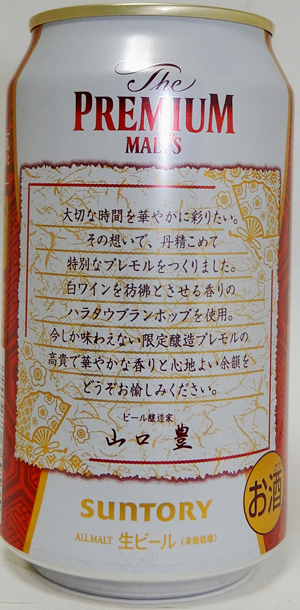 The
PREMIUM
MALT'S
大切な時間を華やかに彩りたい。
その想いで、丹精こめて
特別なプレモルをつくりました。
白ワインを彷彿とさせる香りの
ハラタウブランホップを使用。
今しか味わえない限定醸造プレモルの
高貴で華やかな香りと心地よい余韻を
どうぞお愉しみください。
ビール醸造家
山口 豊
SUNTORY
ALL MALT 生ビール (非熱処理)
お酒